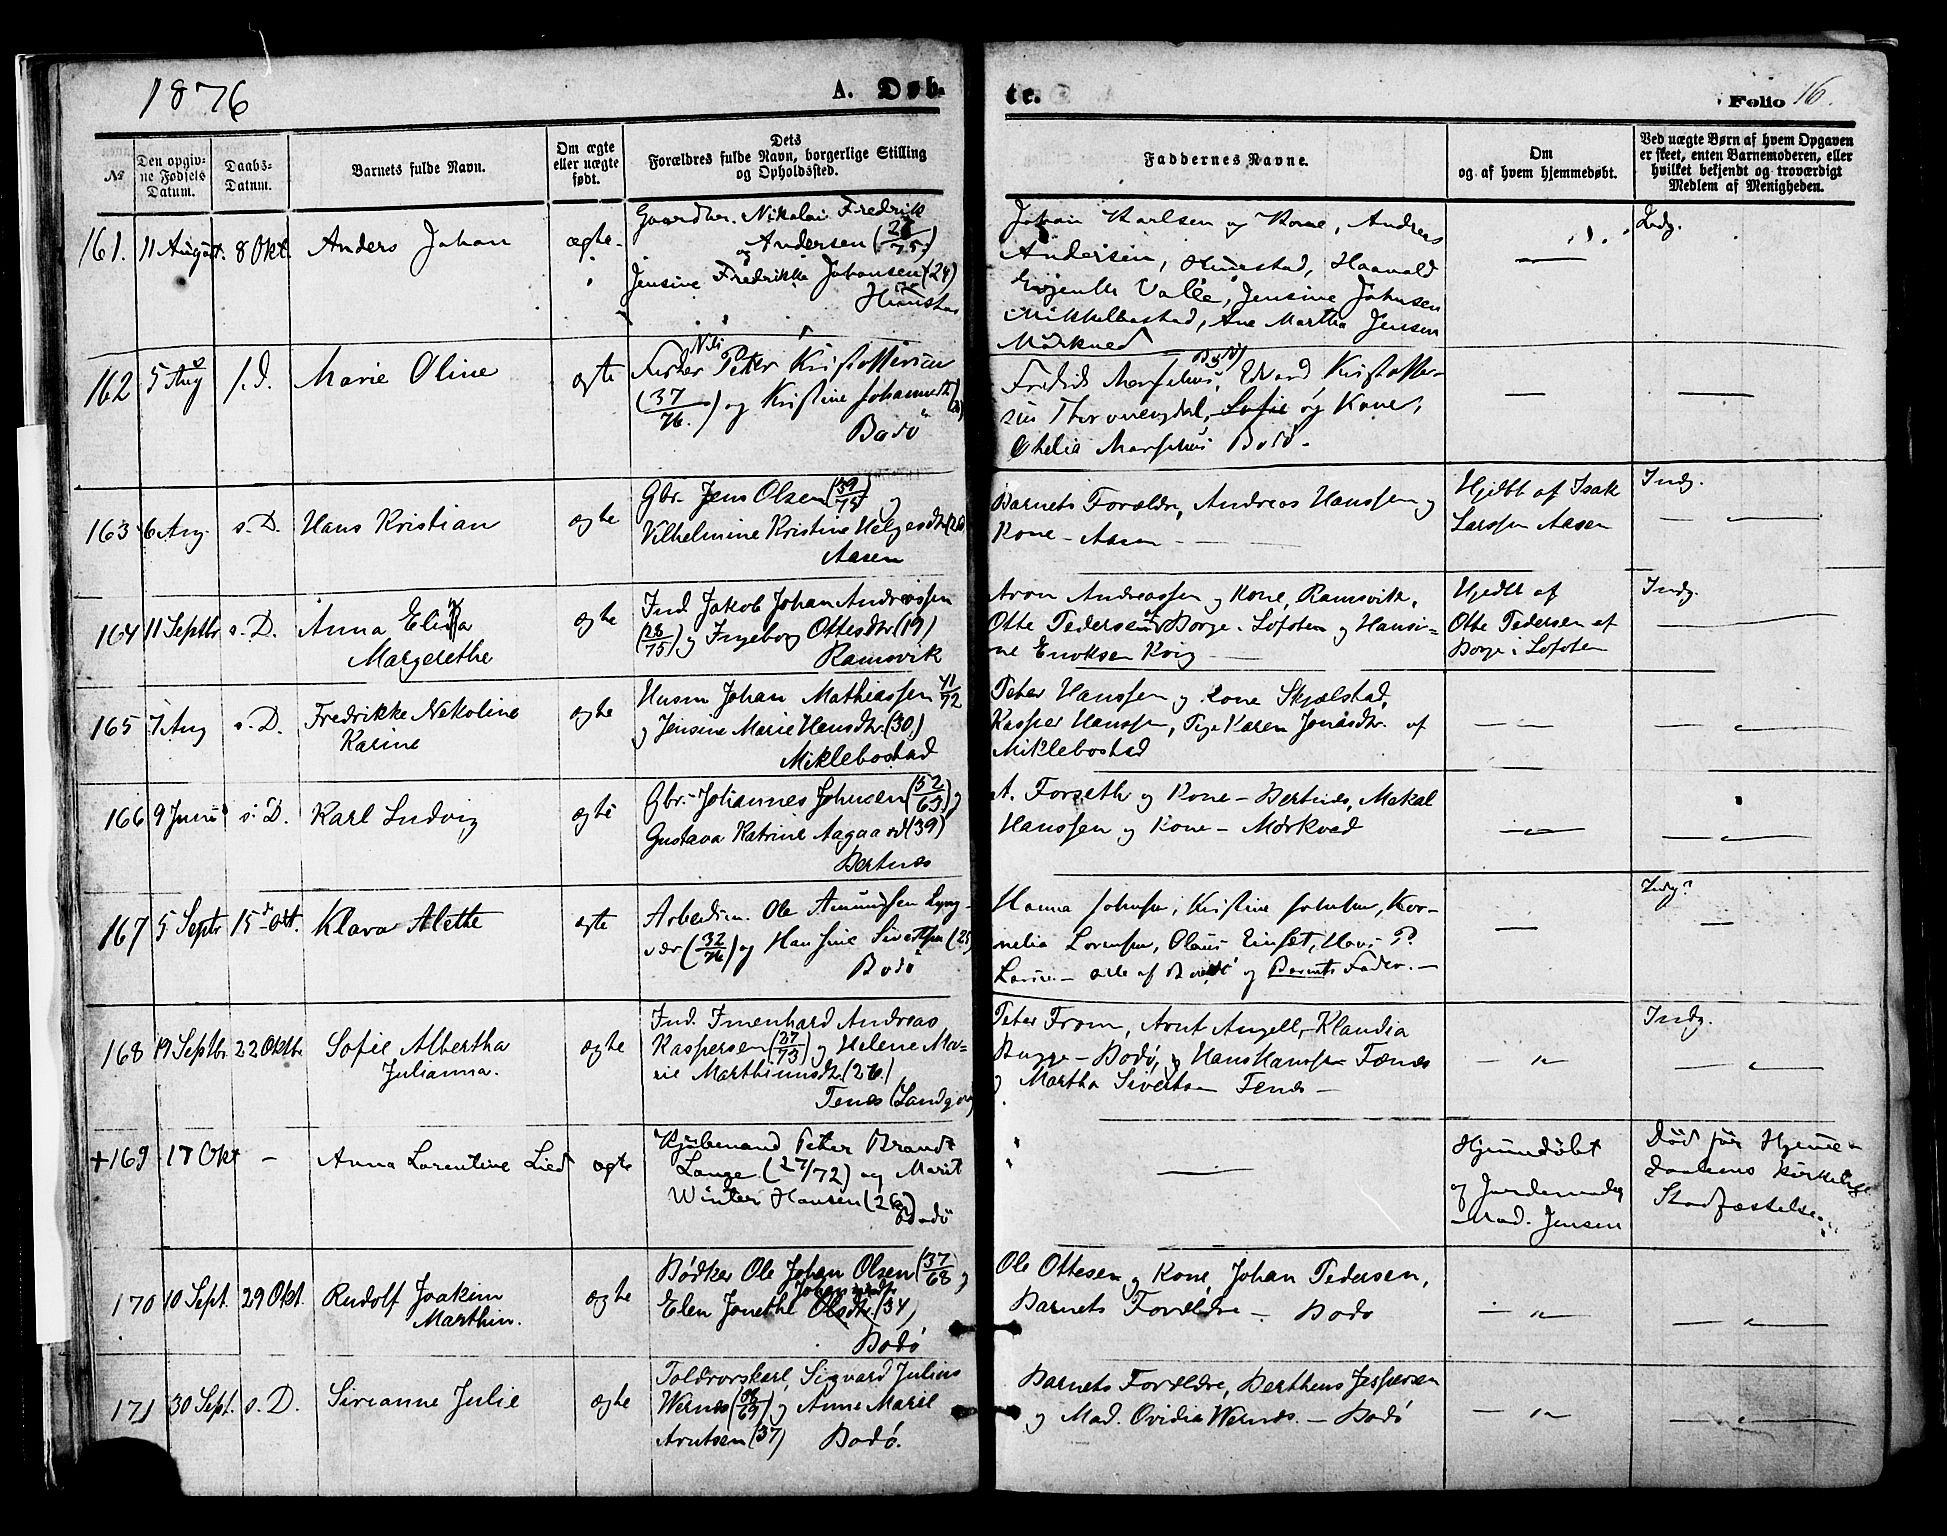 1876
A. Døb-
te.
Folio 16.
№
Den opgiv-
ne Fødsels
Datum.
Daabs-
Datum.
Barnets fulde Navn.
Om ægte
eller uægte
født.
Dets
Forældres fulde Navn, borgerlige Stilling
og Opholdssted.
Faddernes Navne.
Om
og af hvem hjemmedøbt.
Ved uægte Børn af hvem Opgaven
er skeet, enten Barnemoderen, eller
hvilket bekjendt og troværdigt
Medlem af Menigheden.
161. 11 August. 8 Okt. Anders Johan ægte
Gaardbr. Nikolai Fredrik
og Andersen (28/75)
Jensine Fredrikke Johansen (24)
Johan Karlsen og Kone, Andreas
Andersen, Hunstad, Haavald
Evjenth Valle, Jensine Johnsen
Mikkelbostad, Ane Martha Jensen
Mørkved
Indg.
162 5 Aug s. D. Marie Oline ægte
Peter Kristoffersen
(37/76) og Kristine Johannesdtr
Bodø
Bodø
Edvard Kristoffer-
sen og Kone,
Othelia Bodø
163 6 Aug. s. D. Hans Kristian ægte
Gbr. Jens Olsen (39/75) og
Vilhelmine Kristine Helgesdtr (26)
Aasen
Barnets Forældre, Andreas Hanssen og
Kone - Aasen
Hjdbt af Isak
Larssen Aasen
Indg.
164 11 Septbr s. D. Anna Elisa
Margrethe
ægte
Ind. Jakob Johan Andreassen
(28/75) og Ingeborg Ottesdtr (19)
Ramsvik
Aron Andreassen og Kone, Ramsvik,
Otte Pedersen af Borge i Lofoten og Hansi-
ne Enoksen
Hjedbt af
Otte Pedersen af
Borge i Lofoten
Indg.
165 7 Aug s. D. Fredrikke Nekoline
Karine
ægte
Husm Johan Mathiassen 41/72
og Jensine Marie Hansdtr. (30)
Miklebostad
Peter Hanssen og Kone Skjælstad,
Kasper Hanssen, Pige Karen Jonasdtr. af
Miklebostad
166 9 Juni s. D. Karl Ludvig ægte
Gbr. Johannes Johnsen (52/63) og
Gustava Katrine Aagaard (39)
Bertnæs
A. Forseth og Kone - Bertnæs, Mekal
Hanssen og Kone - Mørkved
167 5 Septr 15de Okt. Klara Alethe ægte
Arbeidsm. Ole Amundsen Lyng-
vær (32/76) og Hansine Sivertsen (25)
Bodø
Hanna Johnsen, Kristine Johnsen, Kor-
nelia Lorensen, Olaus Einset, Hans P.
Larsen - alle af Bodø og Barnets Fader. -
Indg.
168 19 Septbr 22 Oktbr Sofie Albertha
Julianna.
ægte
Ind. Imenhard Andreas
Kaspersen (27/73) og Helene Ma-
rie Marthinusdtr (26)
Fenes (Landgode)
Peter From, Arnt Angell, Klaudia
Bugge - Bodø, og Hans Hanssen Fænes
og Martha Sivertsen Fenes -
Indg.
+ 169 17 Okt - Anna Lorentine Lied ægte
Kjøbmand Peter Brandt
Lange (27/72) og Marit
Winter Hansen (26)
Bodø
Hjemmedøbt
af Jordemoder
Mad. Jensen
Død før Hjemme-
daabens kirkelige
Stadfæstelse.
170 10 Sept. 29 Okt. Rudolf Joakim
Marthin.
ægte
Bødker Ole Johan Olsen (37/68) og
Elen Jonethe Olsdtr (34)
Bodø
Ole Ottesen og Kone, Johan Pedersen,
Barnets Forældre - Bodø
171 30 Sept. s. D. Sirianne Julie ægte
Toldrorskarl Sigvard Julius
Wernæs og Anne Marie
Arntsen (37) Bodø.
Barnets Forældre, Bertheus Jespersen
og Mad. Ovidia Wernæs. - Bodø